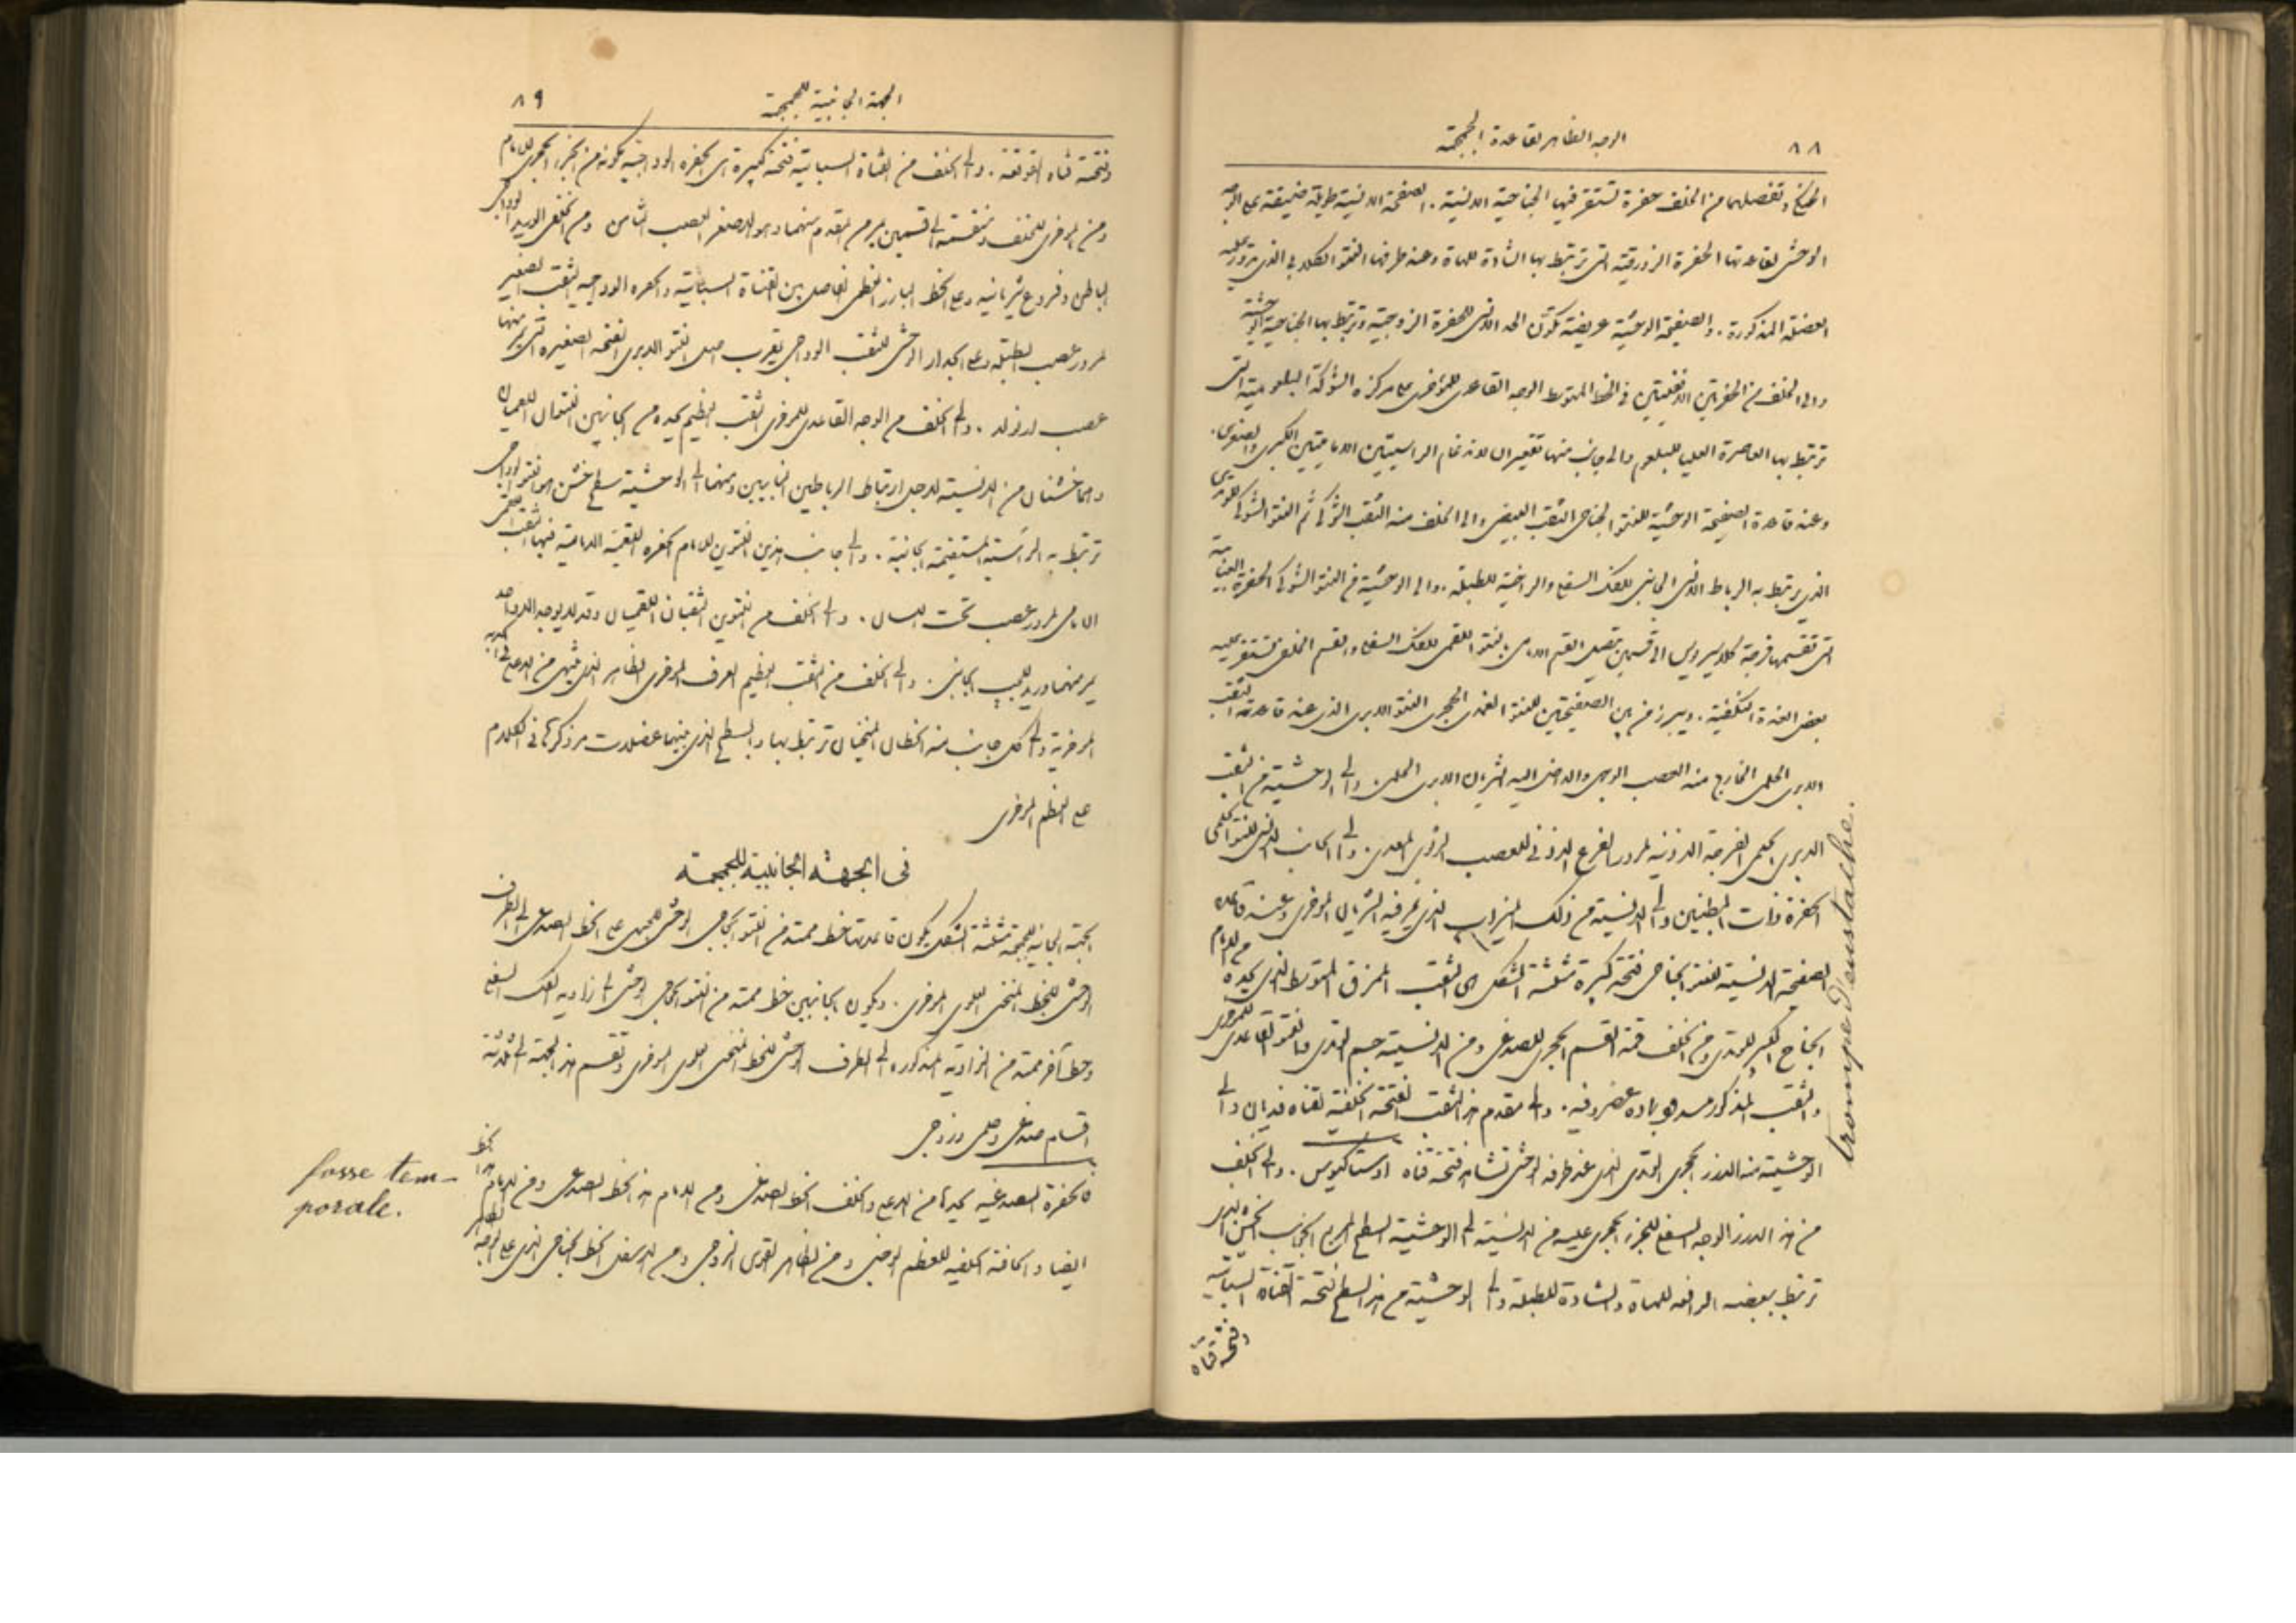 ٨٨
الوجه الظاهر لقاعدة الجمجمة
وتفصلهما من الخلف حفرة تستقر فيها الجناحية الانسية . الصفيحة الانسية طويلة ضيقة على الوجه
الوحشى لقاعدتها الحفرة الزورقية التى ترتبط بها الشادة للهاة وعند طرفها النتو الكلابى الذى تدور عليه
العضلة المذكورة . والصفيحة الوحشية عريضة تكوّن الحد الانسى للحفرة الزوجية وترتبط بها الجناحية الوحشية
والى الخلف من الحفرتين الانفيتين فى الخط المتوسط الوجه القاعدى للمؤخرى على مركزه الشوكة البلعومية التى
ترتبط بها العاصرة العليا للبلعوم والى جانب منها تقعيران لاندغام الراسيتين الاماميتين الكبرى والصغرى .
وعند قاعدة الصفيحة الوحشية للنتو الجناحى الثقب البيضى والى الخلف منه الثقب الشوكى ثم النتو الشوكى للوتدى
الذى يرتبط به الرباط الانسى الجانبى للفك السفلى والراخية للطبلة . والى الوحشية من النتو الشوكى الحفرة العنابية
التى تقسمها فرجة كلاسيروس الى قسمين يتصل القسم الامامى بالنتو اللقمى للفك السفلى والقسم الخلفى تستقر عليه
بعض الغدة النكفية . ويبرز من بين الصفيحتين للنتو الغمدى الحجرى النتو الابرى الذى عند قاعدته الثقب
الابرى الحلمى الخارج منه العصب الوجهى والداخل اليه الشريان الابرى الحلمى . والى الوحشية من الثقب
الابرى الحلمى الفرجة الاذنية لمرور الفرع الاذنى للعصب الرئوى المعدى . والى الجانب الانسى للنتو الحلمى
الحفرة ذات البطنين والى الانسية من ذلك الميزاب الذى يمر فيه الشريان المؤخرى وعند قاعدة
الصفيحة الانسية للنتو الجناحى فتحة كبيرة مثلثة الشكل هى الثقب الممزق المتوسط الذى يحده من الامام
الجناح الكبير للوتدى ومن الخلف قمة القسم الحجرى للصدغى ومن الانسية جسم الوتدى والنتو القاعدى للمؤخرى
والثقب المذكور مسدود بمادة غضروفية . والى مقدم هذا الثقب الفتحة الخلفية لقناة فديان والى
الوحشية منه الدرز الحجرى الوتدى الذى عند طرفه الوحشى تشاهد فتحة قناة اوستاكيوس . والى الخلف
من هذا الدرز الوجه السفلى للجزء الحجرى عليه من الانسية الى الوحشية السطح المربع الجوانب الخشن الذى
ترتبط ببعضه الرافعة للهاة والشادة للطبلة والى الوحشية من هذا السطح فتحة القناة السباتية
وفتحة قناة
trompe d'eustache.
٨٩
الجهة الجانبية للجمجمة
وفتحة قناة القوقعة . والى الخلف من القناة السباتية فتحة كبيرة هى الحفرة الوداجية مكونة من الجزء الحجرى للامام
ومن المؤخرى للخلف ومنقسمة الى قسمين يمر من المقدم منهما وهو الاصغر العصب الثامن ومن الخلفى الوريد الوداجى
الباطن وفروع شريانية وعلى الخط البارز العظمى الفاصل بين القناة السباتية والحفرة الوداجية الثقب الصغير
لمرور عصب الطبلة وعلى الجدار الوحشى للثقب الوداجى بقرب اصل النتو الابرى الفتحة الصغيرة التى يمر منها
عصب ارنولد . والى الخلف من الوجه القاعدى للمؤخرى الثقب العظيم يحده من الجانبين النتوان اللقميان
وهما خشنان من الانسية لاجل ارتباط الرباطين النابيين ومنهما الى الوحشية سطح خشن هو النتو الوداجى
ترتبط به الراسية المستقيمة الجانبية . والى جانب هذين النتوين للامام الحفرة اللقمية الامامية فيها الثقب اللقمى
الامامى لمرور عصب تحت اللسان . والى الخلف من النتوين الثقبان اللقميان وقد لا يوجد الا واحد
يمر منهما وريد للجيب الجانبى . والى الخلف من الثقب العظيم العرف المؤخرى الظاهر الذى ينتهى من الاعلى فى الحدبة
المؤخرية والى كل جانب منه الخطان المنحنيان ترتبط بها وبالسطح الذى بينهما عضلات مر ذكرها فى الكلام
على العظم المؤخرى
فى الجهة الجانبية للجمجمة
الجهة الجانبية للجمجمة مثلثة الشكل يكون قاعدتها خط ممتد من النتو الحجاجى الوحشى للجبهى على الخط الصدغى الى الطرف
الوحشى للخط المنحنى العلوى المؤخرى . ويكون الجانبين خط ممتد من النتو الحجاجى الوحشى الى زاوية الفك السفلى
وخط آخر ممتد من الزاوية المذكورة الى الطرف الوحشى للخط المنحنى العلوى المؤخرى وتقسم هذه الجهة الى ثلاثة
اقسام صدغى وحلمى وزوجى
فالحفرة الصدغية يحيدها من الاعلى والخلف الخط الصدغى ومن الامام هذا الخط الصدغى
ايضا والحافة الخلفية للعظم الوجنى ومن الظاهر القوس الزوجى ومن الاسفل الخط الجناحى الذى على الوجه
fosse tem-
porale.